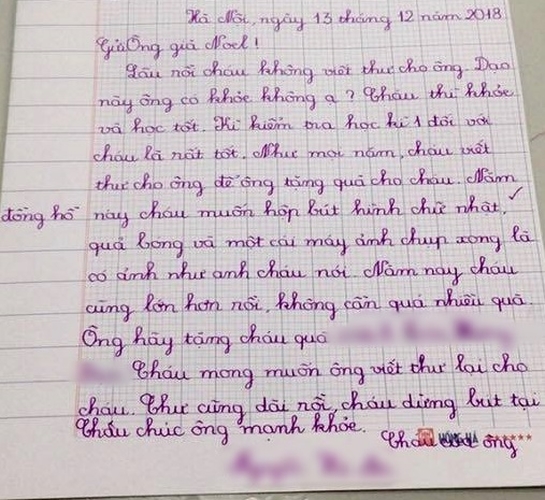 Hà Nội, ngày 13 tháng 12 năm 2018
Gửi Ông già Noel!
Lâu rồi cháu không viết thư cho ông. Dạo
này ông có khỏe không ạ? Cháu thì khỏe
và học tốt. Kì kiểm tra học kì 1 đối với
cháu là rất tốt. Như mọi năm, cháu viết
thư cho ông để ông tặng quà cho cháu. Năm
đồng hồ này cháu muốn hộp bút hình chữ nhật, ✓
quả bóng và một cái máy ảnh chụp xong là
có ảnh như anh cháu nói. Năm nay cháu
cũng lớn hơn rồi, không cần quá nhiều quà.
Ông hãy tặng cháu quà
Cháu mong muốn ông viết thư lại cho
cháu. Thư cũng dài rồi, cháu dừng bút tại
Cháu chúc ông mạnh khỏe.
Cháu ông